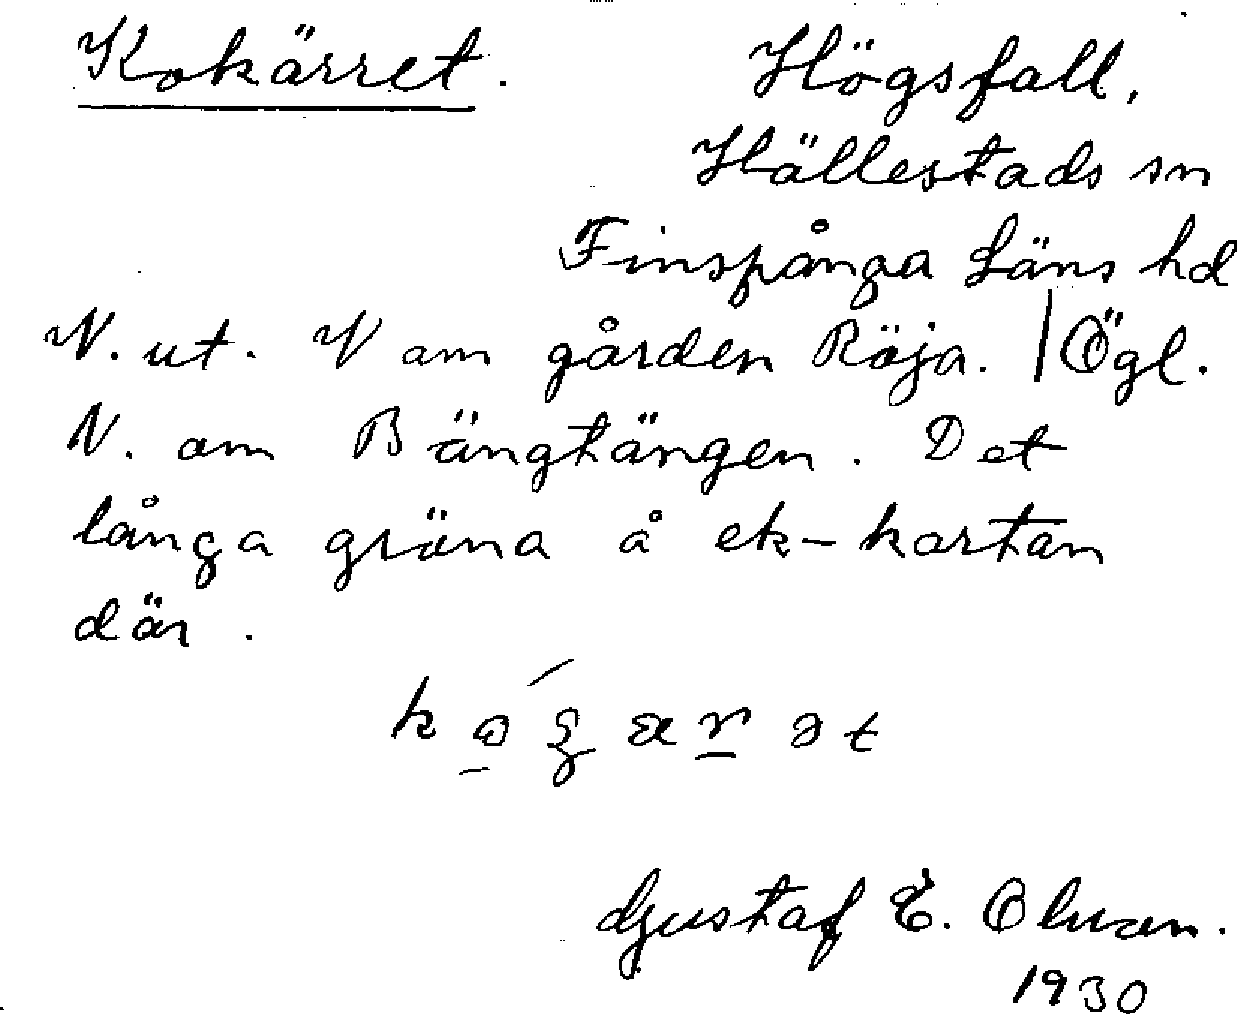 Kokärret. Högsfall,
Hällestads sn
Finspånga Läns hd
N. ut. V om gården Röja. | Ögl.
N. om Bängtängen. Det
långa gröna å ek-kartan
där.
Gustaf E.
1930